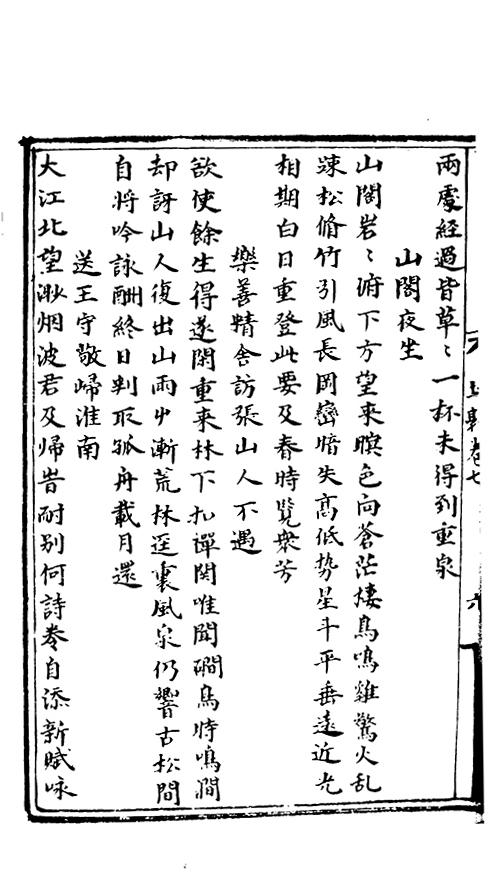 兩處經過皆草〻一杯未得到重泉
山閣夜坐
山閣岩〻俯下方望来暝色向蒼茫棲鳥鳴雞驚火乱
踈松脩竹引風長岡巒暗失髙低势星斗平垂遠近光
相期白日重登此要及春時覧衆芳
樂善精舍訪張山人不遇
欲使餘生得遂閑重来林下扣禪関唯聞磵鳥時鳴澗
却訝山人復出山雨中漸荒林逕裏風泉仍響古松間
自将吟詠酬終日判取孤舟載月還
送王守敬歸淮南
大江北望渺烟波君及歸时耐别何詩券自添新賦咏
卷七
六